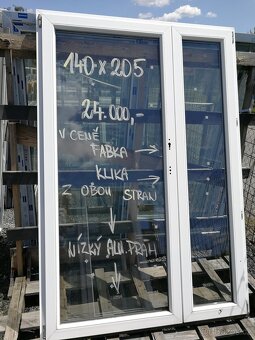 140 x 205
24.000,-
V CENĚ
FABKA →
KLIKA
Z OBOU STRAN →
↓
NÍZKÝ ALU. PRÁH
↓